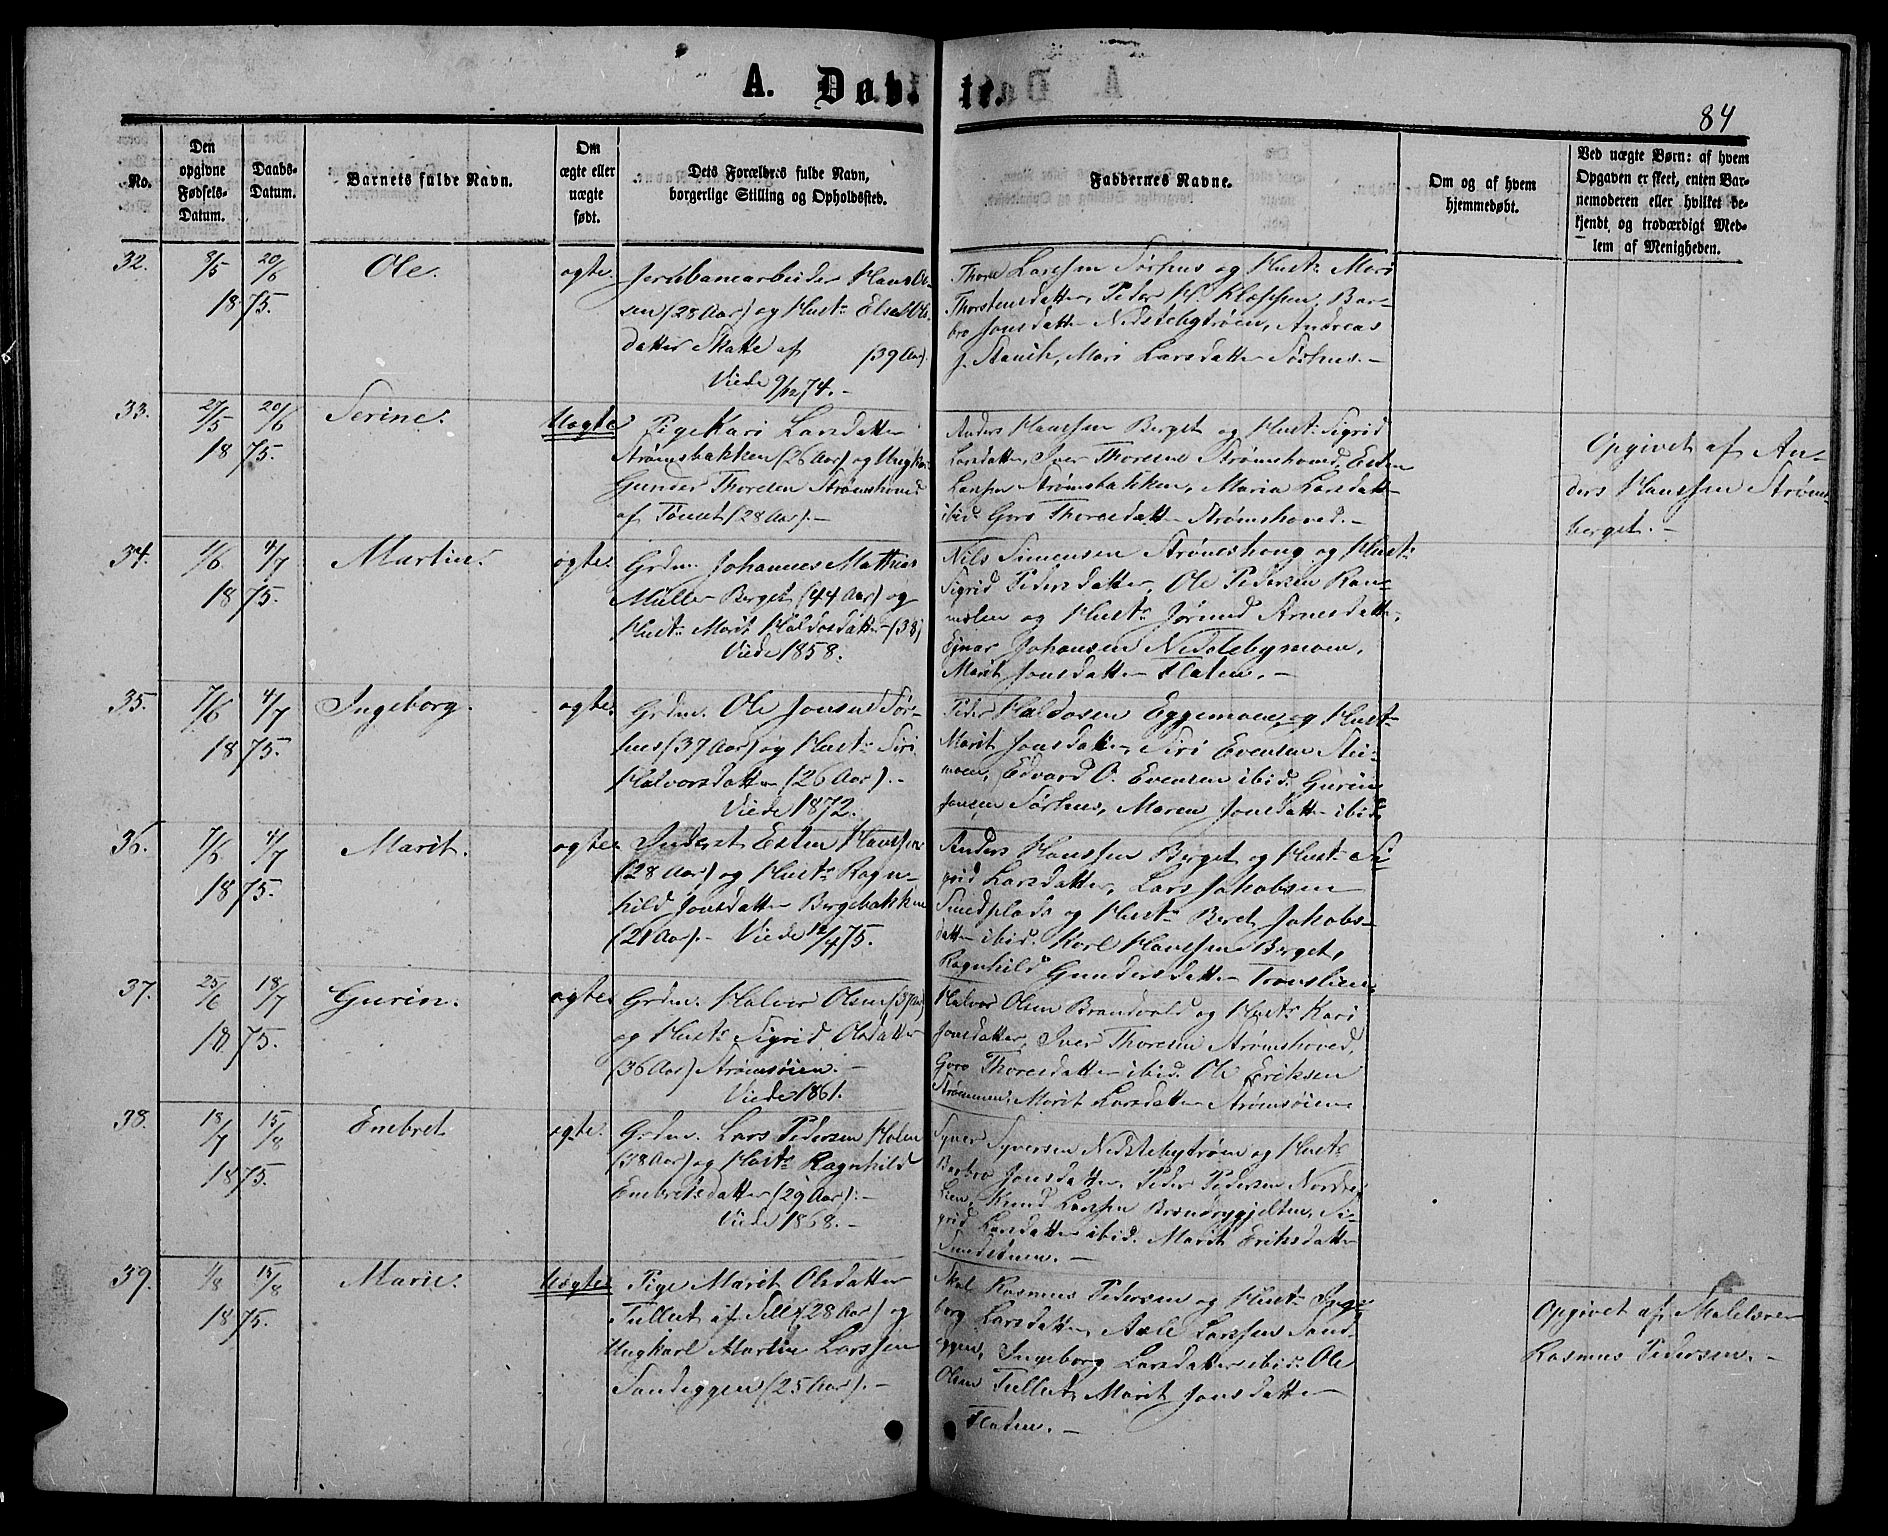 A. Døbte.
84
No.
Den opgivne Fødsels-Datum.
Daabs-Datum.
Barnets fulde Navn.
Om ægte eller uægte født.
Dets Forældres fulde Navn, borgerlige Stilling og Opholdssted.
Faddernes Navne.
Om og af hvem hjemmedøbt.
Ved uægte Børn: af hvem Opgaven er skeet, enten Barnemoderen eller hvilket bekjendt og troværdigt Medlem af Menigheden.
32. 8/5 20/6 1875. Ole. ægte.
Jernbanearbeider Hans Ol-
sen (28 Aar) og Hust: Elsa Ols-
datter af (39 Aar).
Viede 9/12 74. -
Thore Larssen Sørhus og Hust: Mari
Thorstensdatter, Peder H. Klæppen, Bar-
bro Jonsdatter Nedstebytrøen, Andreas
J. Mari Larsdatter Sørhus. -
33. 27/5 20/6 1875. Serine. Uægte
Pige Kari Larsdatter
Strømsbakken (26 Aar) og Ungkar
Gunder Thoresen Strømshoved
af Tønset (28 Aar). -
Anders Hanssen Berget og Hust: Sigrid
Larsdatter, Iver Thoresen Strømshoved, Esten
Larssen Strømsbakken, Maria Larsdatter
ibid. Goro Thoresdatter Strømshoved. -
Opgivet af An-
ders Hanssen Strøms-
berget. -
34. 1/6 4/7 1875. Martin. ægte.
Grdm. Johannes Mathias
Müller Berget (44 Aar) og
Hust: Marit Haldosdatter (38)
Viede 1858.
Nils Simensen Strømshaug og Hust:
Sigrid Pedersdatter, Ole Pedersen Ram-
molen og Hust: Jørund Arnesdatter,
Ejnar Johansen Nedstebymoen,
Marit Jonsdatter Flaten. -
35. 7/6 4/7 1875. Ingeborg. ægte.
Grdm. Ole Jonsen Sør-
hus (37 Aar) og Hust: Siri
Halvorsdatter (26 Aar). -
Viede 1872.
Peder Haldosen Eggemoen og Hust:
Marit Jonsdatter, Siri Evensen
moen, Edvard O. Evensen ibid. Gurin
Jonsen Sørhus, Maren Jonsdatter ibid.
36. 7/6 4/7 1875. Marit. ægte.
Inderst Esten Hanssen
(28 Aar) og Hust: Ragn-
hild Jonsdatter Bergebakken
(21 Aar). - Viede 12/4 75.
Anders Hanssen Berget og Hust: Si-
grid Larsdatter, Lars Jakobsen
Sundplads og Hust: Beret Jakobs-
datter ibid. Karl Hanssen Berget,
Ragnhild Gundersdatter
37. 25/6 18/7 1875. Gurin. ægte.
Grdm. Halvor Olsen (37 Aar)
og Hust: Sigrid Olsdatter
(36 Aar) Strømsøien. -
Viede 1861.
Halvor Olsen Brandvold og Hust: Kari
Jonsdatter, Iver Thoresen Strømshoved,
Goro Thoresdatter ibid. Ole Eriksen
Strømmen, Marit Larsdatter Strømsøien.
38. 18/7 15/8 1875. Enebret. ægte.
Grdm. Lars Pedersen Holen
(38 Aar) og Hust: Ragnhild
Enebretsdatter (29 Aar). -
Viede 1868. -
Syver Syversen Nedstebytrøen og Hust:
Barbro Jonsdatter, Peder Pedersen Nordre
Lien, Knud Larssen Si-
grid Larsdatter ibid. Marit Eriksdatter
39. 1/8 15/8 1875. Marie. Uægte.
Pige Marit Olsdatter
Tullut af Sell (28 Aar) og
Ungkarl Martin Larssen
Sandeggen (25 Aar). -
Skol. Rasmus Pedersen og Hust: Inge-
borg Larsdatter, Axle Larssen Sand-
eggen, Ingeborg Larsdatter ibid. Ole
Olsen Tullut, Marit Jonsdatter
Flaten. -
Opgivet af
Rasmus Pedersen. -